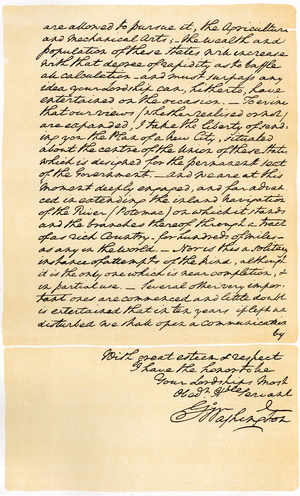 are allowed to pursue it, the Agriculture
and Mechanical Arts; – the wealth and
population of these States will increase
with that degree of rapidity as to baffle
all calculation – and must surpass any
idea your Lordship can, hitherto, have
entertained on the occasion. – To evince
that our views (whether realised or not)
are expanded, I take the liberty of send-
ing you the Plan of a New City, situated
about the centre of the Union of these States
which is designed for the permanent seat
of the Government. – and we are at this
moment deeply engaged, and far advan-
ced in extending the inland navigation
of the River (Potomac) on which it stands
and the branches thereof through a tract
of as rich Country – for hundreds of miles –
as any in the world. – Nor is this a solitary
instance of attempts of the kind, although
it is the only one which is near completion, &
in partial use. – Several other very impor-
tant ones are commenced and little doubt
is entertained that in ten years if left un
disturbed we shall open a communication
by
With great esteem & respect
I have the honor to be
Your Lordships Most
Obedt Hble Servant
Go Washington